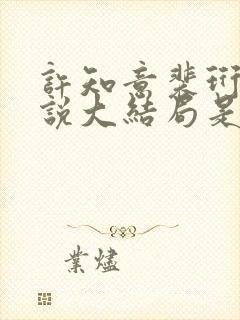 許知意裴珩
說大結局是
業燼